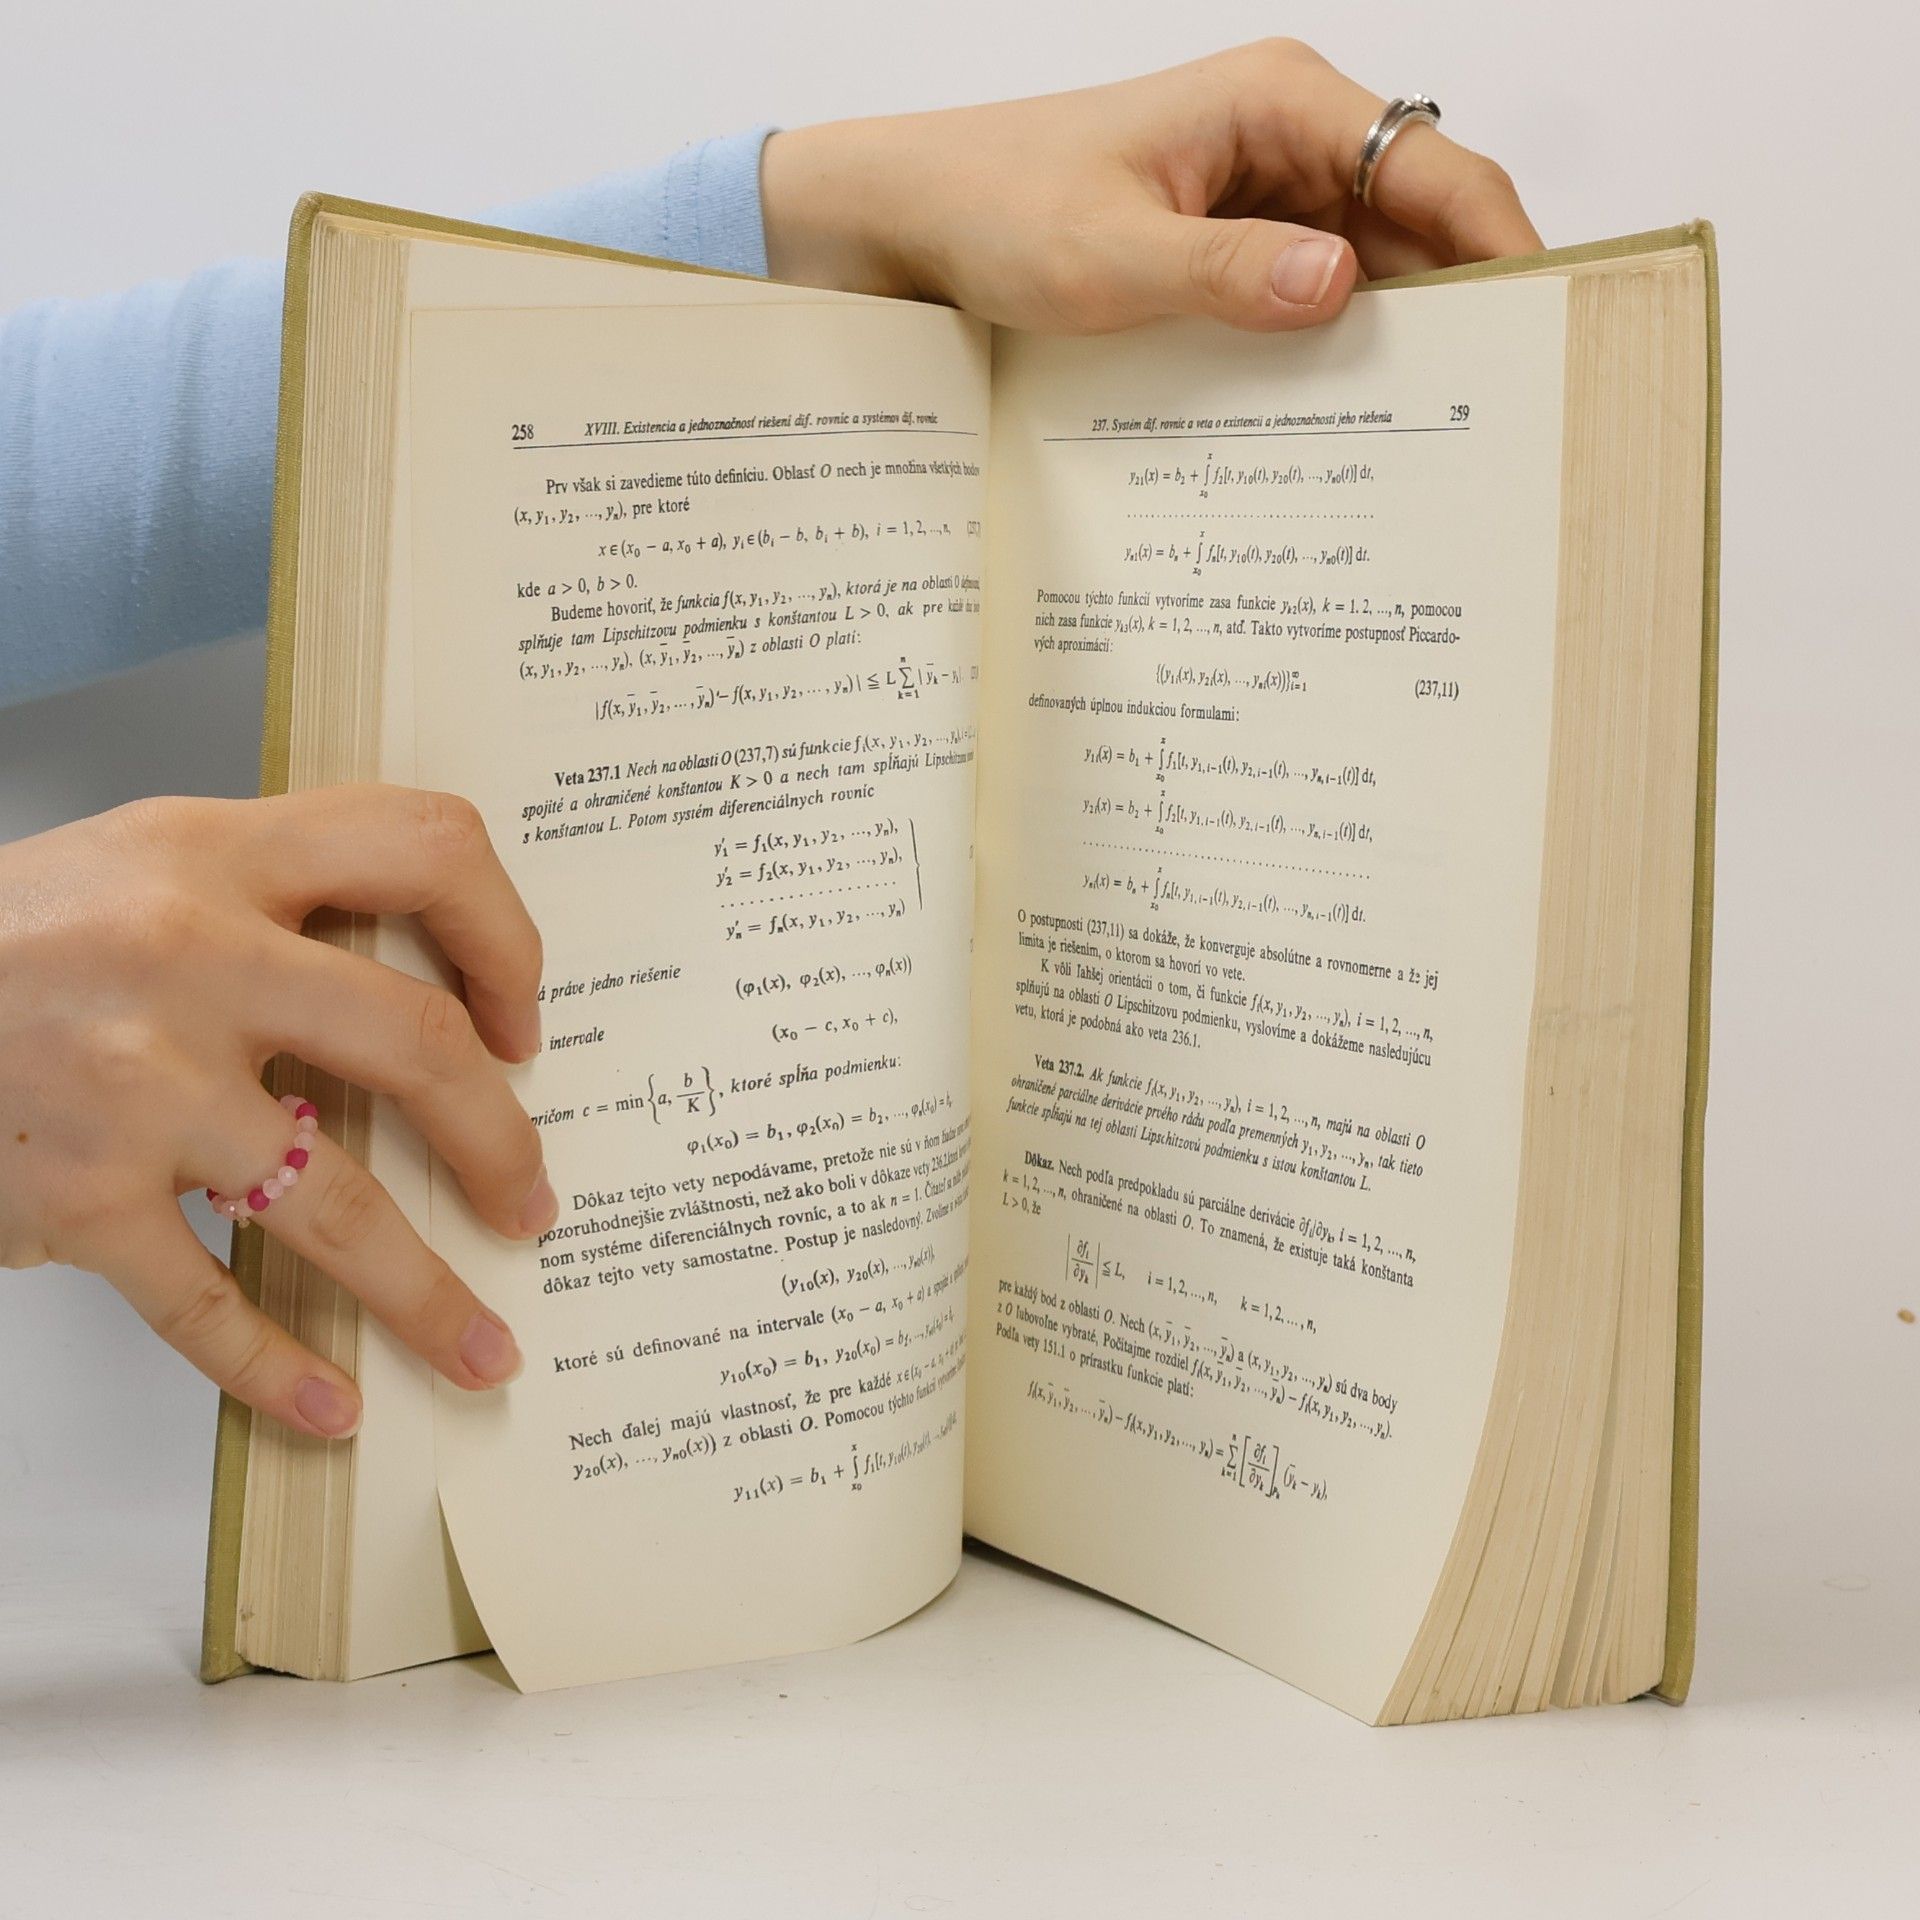 258 XVIII. Existencia a jednoznačnosť riešení dif. rovníc a systémov dif. rovníc
Prv však si zavedieme túto definíciu. Oblasť O nech je množina všetkých bodov
(x, y₁, y₂, ..., yₙ), pre ktoré
x ∈ (x₀ − a, x₀ + a), yᵢ ∈ (bᵢ − b, bᵢ + b), i = 1, 2, ..., n,
kde a > 0, b > 0.
Budeme hovoriť, že funkcia f(x, y₁, y₂, ..., yₙ), ktorá je na oblasti O
splňuje tam Lipschitzovu podmienku s konštantou L > 0, ak pre
(x, y₁, y₂, ..., yₙ), (x, ȳ₁, ȳ₂, ..., ȳₙ) z oblasti O platí:
|f(x, ȳ₁, ȳ₂, ..., ȳₙ) − f(x, y₁, y₂, ..., yₙ)| ≦ L ∑ₖ₌₁ⁿ |ȳₖ − yₖ|.
Veta 237.1 Nech na oblasti O (237,7) sú funkcie fᵢ(x, y₁, y₂, ..., yₙ),
spojité a ohraničené konštantou K > 0 a nech tam spĺňajú
s konštantou L. Potom systém diferenciálnych rovníc
y′₁ = f₁(x, y₁, y₂, ..., yₙ),
y′₂ = f₂(x, y₁, y₂, ..., yₙ),
. . . . . . . . . . . . . . . .
y′ₙ = fₙ(x, y₁, y₂, ..., yₙ)
á práve jedno riešenie
(φ₁(x), φ₂(x), ..., φₙ(x))
intervale
(x₀ − c, x₀ + c),
pričom c = min {a, b/K}, ktoré spĺňa podmienku:
φ₁(x₀) = b₁, φ₂(x₀) = b₂, ..., φₙ(x₀) = bₙ.
Dôkaz tejto vety nepodávame, pretože nie sú v ňom
pozoruhodnejšie zvláštnosti, než ako boli v dôkaze vety 236.2,
nom systéme diferenciálnych rovníc, a to ak n = 1. Čitateľ si
dôkaz tejto vety samostatne. Postup je nasledovný. Zvolíme
(y₁₀(x), y₂₀(x), ..., yₙ₀(x)),
ktoré sú definované na intervale (x₀ − a, x₀ + a) a spojité
y₁₀(x₀) = b₁, y₂₀(x₀) = b₂, ..., yₙ₀(x₀) = bₙ.
Nech ďalej majú vlastnosť, že pre každé x ∈ (x₀ − a, x₀ + a)
y₂₀(x), ..., yₙ₀(x)) z oblasti O. Pomocou týchto funkcií
y₁₁(x) = b₁ + ∫ₓ₀ˣ f₁[t, y₁₀(t), y₂₀(t), ..., yₙ₀(t)] dt,
237. Systém dif. rovníc a veta o existencii a jednoznačnosti jeho riešenia 259
y₂₁(x) = b₂ + ∫ₓ₀ˣ f₂[t, y₁₀(t), y₂₀(t), ..., yₙ₀(t)] dt,
. . . . . . . . . . . . . . . . . . . . . . . . . . . .
yₙ₁(x) = bₙ + ∫ₓ₀ˣ fₙ[t, y₁₀(t), y₂₀(t), ..., yₙ₀(t)] dt.
Pomocou týchto funkcií vytvoríme zasa funkcie yₖ₂(x), k = 1. 2, ..., n, pomocou
nich zasa funkcie yₖ₃(x), k = 1, 2, ..., n, atď. Takto vytvoríme postupnosť Piccardo-
vých aproximácií:
{(y₁ᵢ(x), y₂ᵢ(x), ..., yₙᵢ(x))}ᵢ₌₁^∞ (237,11)
definovaných úplnou indukciou formulami:
y₁ᵢ(x) = b₁ + ∫ₓ₀ˣ f₁[t, y₁,ᵢ₋₁(t), y₂,ᵢ₋₁(t), ..., yₙ,ᵢ₋₁(t)] dt,
y₂ᵢ(x) = b₂ + ∫ₓ₀ˣ f₂[t, y₁,ᵢ₋₁(t), y₂,ᵢ₋₁(t), ..., yₙ,ᵢ₋₁(t)] dt,
. . . . . . . . . . . . . . . . . . . . . . . . . . . . . . . .
yₙᵢ(x) = bₙ + ∫ₓ₀ˣ fₙ[t, y₁,ᵢ₋₁(t), y₂,ᵢ₋₁(t), ..., yₙ,ᵢ₋₁(t)] dt.
O postupnosti (237,11) sa dokáže, že konverguje absolútne a rovnomerne a že jej
limita je riešením, o ktorom sa hovorí vo vete.
K vôli ľahšej orientácii o tom, či funkcie fᵢ(x, y₁, y₂, ..., yₙ), i = 1, 2, ..., n,
splňujú na oblasti O Lipschitzovu podmienku, vyslovíme a dokážeme nasledujúcu
vetu, ktorá je podobná ako veta 236.1.
Veta 237.2. Ak funkcie fᵢ(x, y₁, y₂, ..., yₙ), i = 1, 2, ..., n, majú na oblasti O
ohraničené parciálne derivácie prvého rádu podľa premenných y₁, y₂, ..., yₙ, tak tieto
funkcie spĺňajú na tej oblasti Lipschitzovú podmienku s istou konštantou L.
Dôkaz. Nech podľa predpokladu sú parciálne derivácie ∂fᵢ/∂yₖ, i = 1, 2, ..., n,
k = 1, 2, ..., n, ohraničené na oblasti O. To znamená, že existuje taká konštanta
L > 0, že
|∂fᵢ/∂yₖ| ≦ L, i = 1, 2, ..., n, k = 1, 2, ..., n,
pre každý bod z oblasti O. Nech (x, ȳ₁, ȳ₂, ..., ȳₙ) a (x, y₁, y₂, ..., yₙ) sú dva body
z O ľubovoľne vybraté. Počítajme rozdiel fᵢ(x, ȳ₁, ȳ₂, ..., ȳₙ) − fᵢ(x, y₁, y₂, ..., yₙ).
Podľa vety 151.1 o prírastku funkcie platí:
fᵢ(x, ȳ₁, ȳ₂, ..., ȳₙ) − fᵢ(x, y₁, y₂, ..., yₙ) = ∑ₖ₌₁ⁿ [∂fᵢ/∂yₖ]ₚₖ (ȳₖ − yₖ),